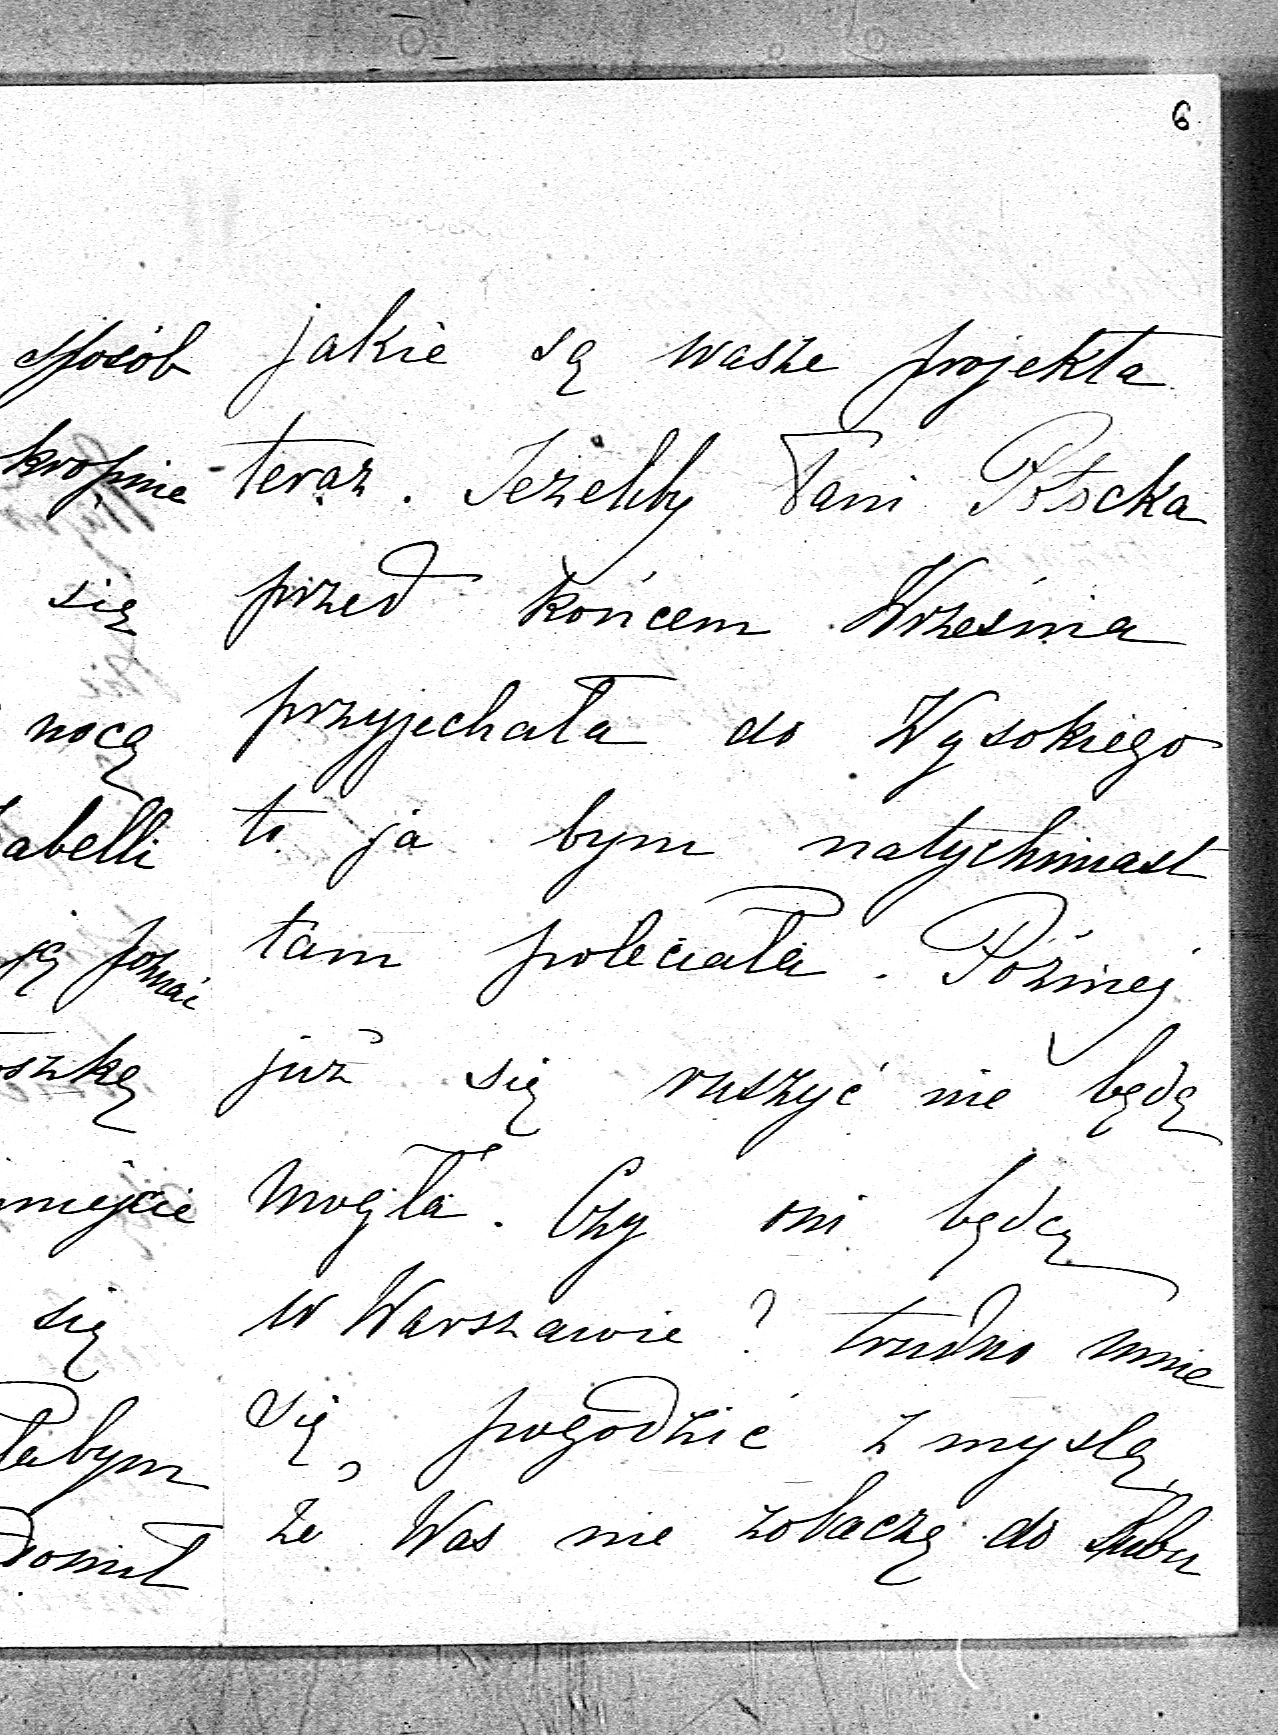 6
sposób
kropnie
się
nocą
abelli
ją poznać
oszkę
miejcie
się
łabym
jakie są wasze projekta
teraz. Jeżeliby Pani Potocka
przed końcem Września
przyjechała do Wysokiego
to ja bym natychmiast
tam poleciała. Póżniej
już się ruszyć nie będę
mogła. Czy oni będą
w Warszawie? trudno mnie
się pogodzić z myslą,
że Was nie zobaczę do slubu